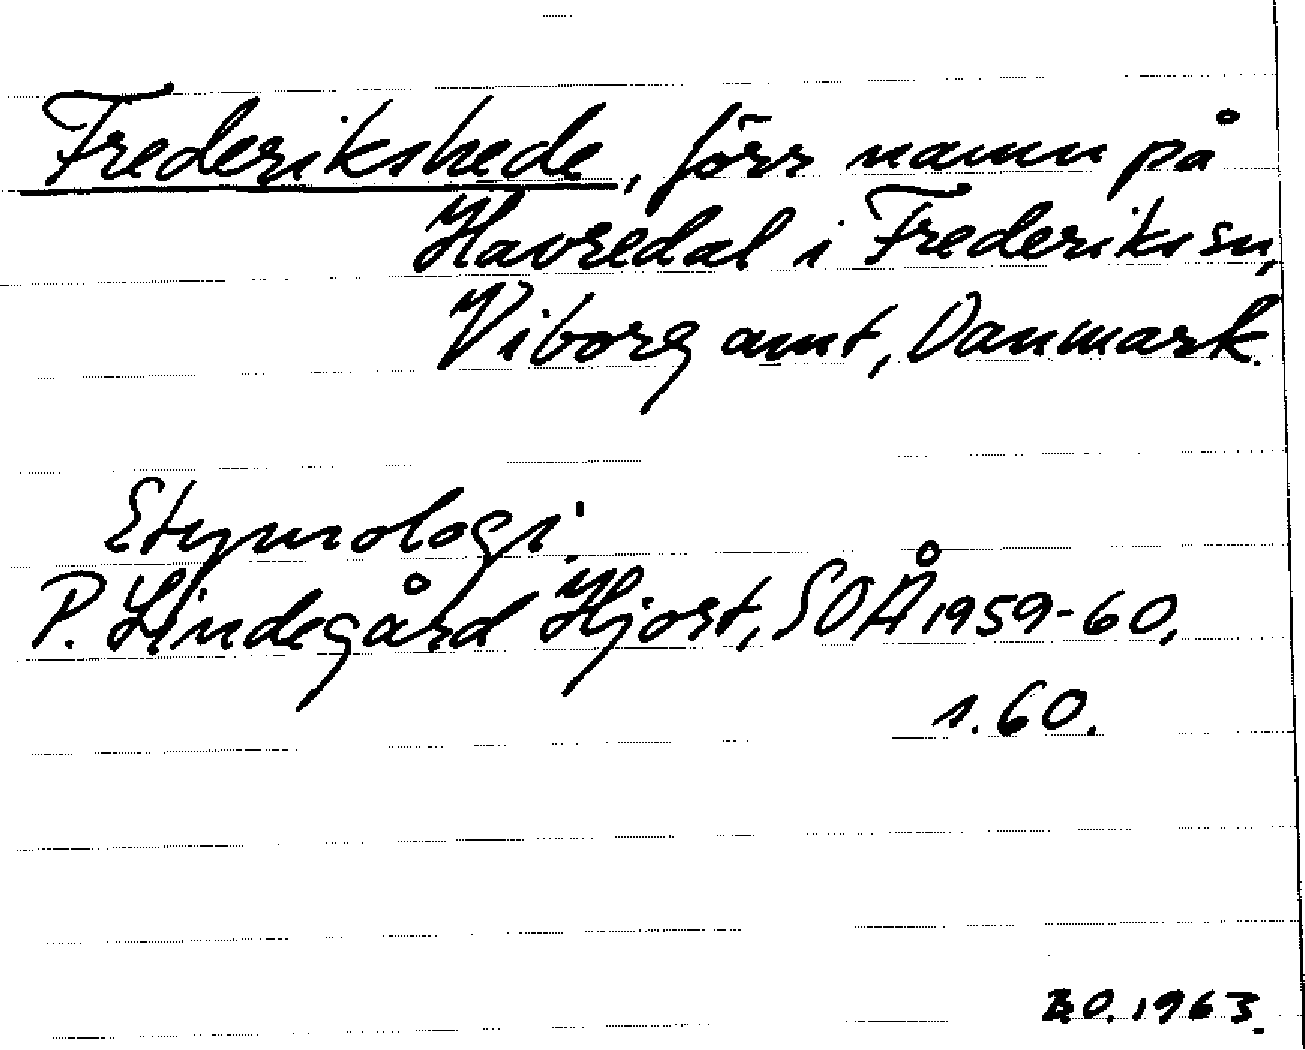 Frederikshede, förr namn på
Havredal i Frederiks sn,
Viborg amt, Danmark.
Etymologi.
P. Lindegård Hjort, SOÅ 1959-60,
s. 60.
B.O. 1963.